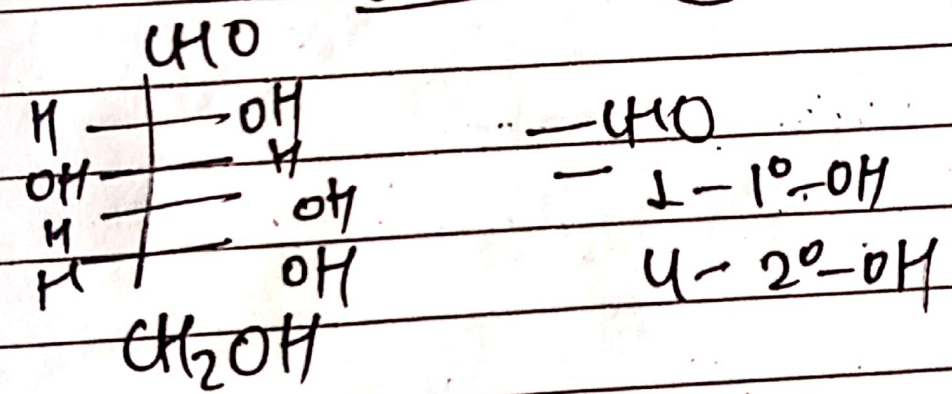 CHO
H OH
OH H
H OH
H OH
CH₂OH
—CHO
— 1 – 1° – OH
4 – 2° – OH